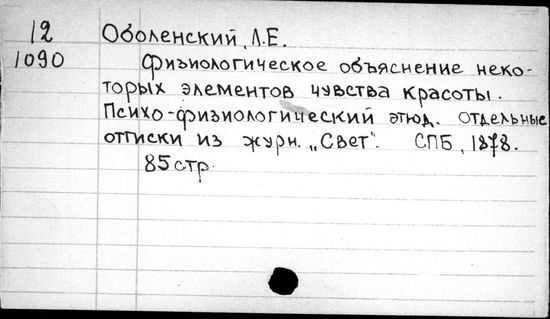 12 Оболенский, Л.Е.
1090 Физиологическое объяснение неко-
торых элементов чувства красоты.
Психо-физиологический этюд. Отдельные
оттиски из журн. „Свет". СПБ, 1878.
85 стр.